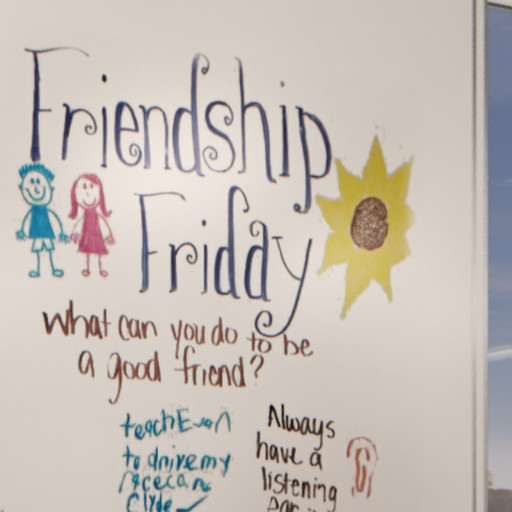 Friendship
Friday
What can you do to be
a good friend?
teach Evan
to drive my
racecar
Clyde
Always
have a
listening
ear